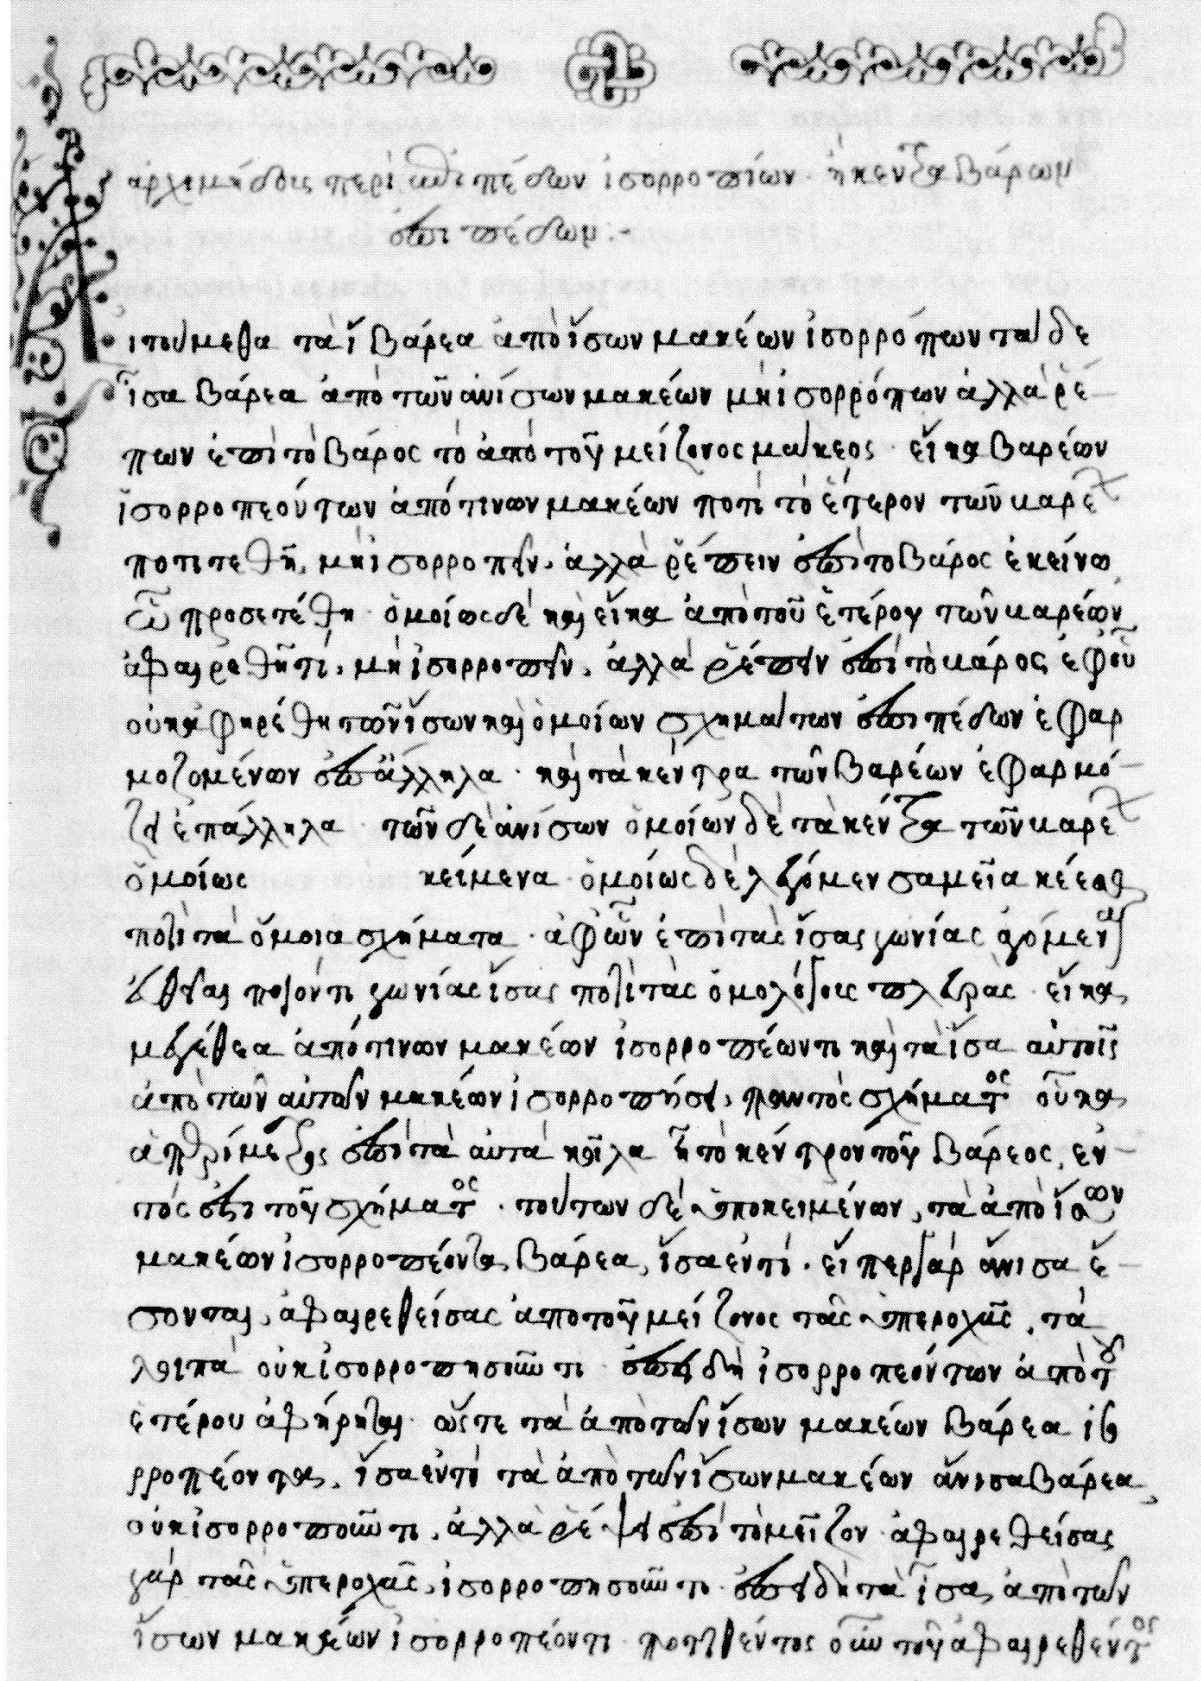 ἀρχιμήδους περὶ ἐπιπέδων ἰσορροπιῶν ἢ κέντρα βάρων
ἐπιπέδων :-
Αἰτούμεθα τὰ ἴ βάρεα ἀπὸ ἴσων μακέων ἰσορροπῶν τὰ δὲ
ἴσα βάρεα ἀπὸ τῶν ἀνίσων μακέων μὴ ἰσορροπῶν ἀλλὰ ῥέ
πων ἐπὶ τὸ βάρος τὸ ἀπὸ τοῦ μείζονος μάκεος · εἴ κα βαρέων
ἰσορροπεούντων ἀπό τινων μακέων ποτὶ τὸ ἕτερον τῶν καρε
ποτιτεθῆ, μὴ ἰσορροπεῖν, ἀλλὰ ῥέπειν ἐπὶ τὸ βάρος ἐκείνω
ᾧ προσετέθη · ὁμοίως δὲ καὶ εἴ κα ἀπὸ τοῦ ἑτέρου τῶν καρέων
ἀφαιρεθῆ τί, μὴ ἰσορροπεῖν, ἀλλὰ ῥέπειν ἐπὶ τὸ κάρος ἐφ' οὗ
οὐκ ἀφηρέθη τῶν ἴσων καὶ ὁμοίων σχημάτων ἐπιπέδων ἐφαρ
μοζομένων ἐπ' ἄλληλα · καὶ τὰ κέντρα τῶν βαρέων ἐφαρμό
ζει ἐπάλληλα · τῶν δὲ ἀνίσων ὁμοίων δὲ τὰ κέντρα τῶν καρε
ὁμοίως κείμενα · ὁμοίως δὲ λέγομεν σαμεῖα κέεσθαι
ποτὶ τὰ ὅμοια σχήματα · ἀφ' ὧν ἐπὶ τὰς ἴσας γωνίας ἀγόμεναι
εὐθεῖαι ποιοῦντι γωνίας ἴσας ποτὶ τὰς ὁμολόγους πλευράς · εἴ κα
μεγέθεα ἀπό τινων μακέων ἰσορροπέωντι καὶ τὰ ἴσα αὐτοῖς
ἀπὸ τῶν αὐτῶν μακέων ἰσορροπήσει, παντὸς σχήματος οὗ κα
ἁ περίμετρος ἐπὶ τὰ αὐτὰ κοῖλα ἦ τὸ κέντρον τοῦ βάρεος, ἐν
τός ἐστι τοῦ σχήματος · τούτων δὲ ὑποκειμένων, τὰ ἀπὸ ἴσων
μακέων ἰσορροπέοντα βάρεα, ἴσα ἐντί · εἴπερ γὰρ ἄνισα ἔ
σονται, ἀφαιρεθείσας ἀπὸ τοῦ μείζονος τᾶς ὑπεροχᾶς, τὰ
λοιπὰ οὐκ ἰσορροπησοῦντι · ἐπεὶ δὴ ἰσορροπεόντων ἀπὸ τοῦ
ἑτέρου ἀφήρηται · ὥστε τὰ ἀπὸ τῶν ἴσων μακέων βάρεα ἰσο
ρροπέοντα, ἴσα ἐντὶ τὰ ἀπὸ τῶν ἴσων μακέων ἄνισα βάρεα
οὐκ ἰσορροποῦντι, ἀλλὰ ῥέψει ἐπὶ τὸ μεῖζον · ἀφαιρεθείσας
γὰρ τᾶς ὑπεροχᾶς, ἰσορροπησοῦντι · ἐπεὶ δὴ τὰ ἴσα ἀπὸ τῶν
ἴσων μακέων ἰσορροπέοντι · ποτεθέντος οὖν τοῦ ἀφαιρεθέντος